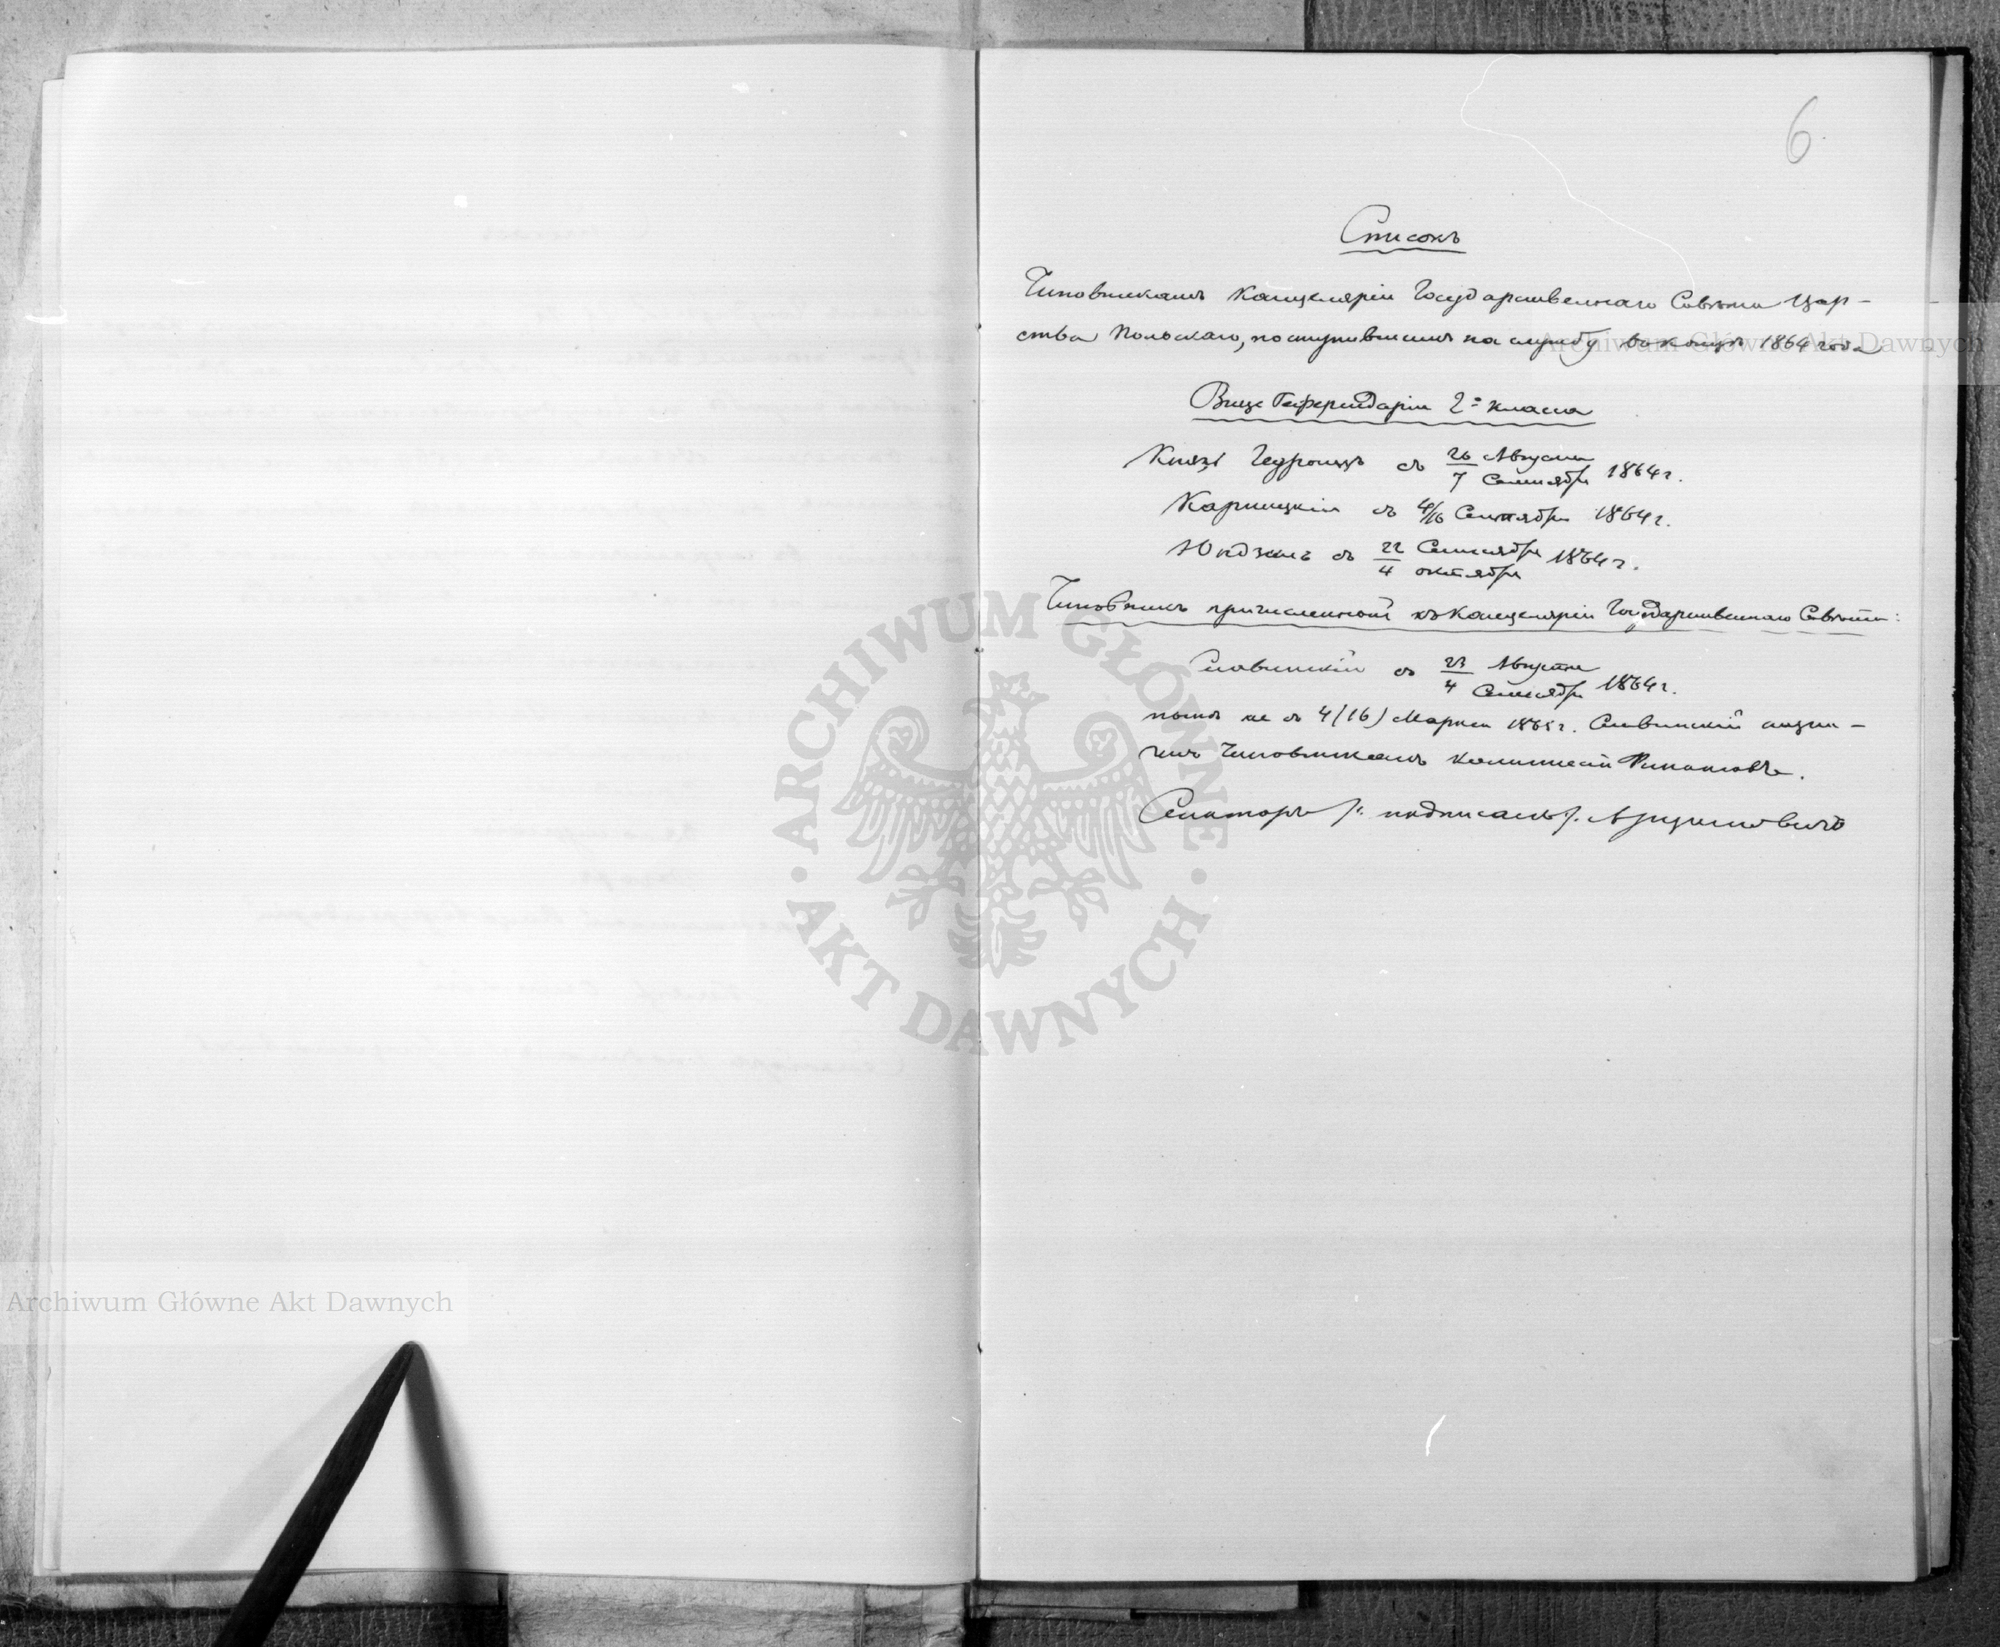 6
Списокъ
Чиновникамъ Канцеляріи Государственнаго Совѣта Цар-
ства Польскаго, поступившимъ на службу въ концѣ 1864 года
Archiwum Główne Akt Dawnych
Вице Референдаріи 2го класса
Князь Гедройцъ съ 26 Августа / 7 Сентября 1864 г.
Карницкій съ 4/16 Сентября 1864 г.
Юндзилъ съ 22 Сентября / 4 октября 1864 г.
Чиновникъ причисленный къ Канцеляріи Государственнаго Совѣта:
Словинскій съ 23 Августа / 4 Сентября 1864 г.
съ 4 (16) Марта 1865 г. Словинскій
чиновникомъ Коммисіи Финансовъ.
Сенаторъ /: подписалъ /: Арцимовичъ
ARCHIWUM GŁÓWNE
· AKT DAWNYCH ·
Archiwum Główne Akt Dawnych